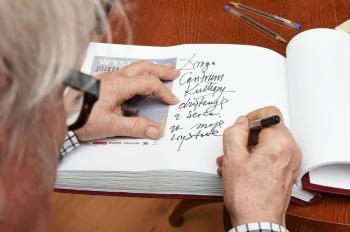 WYST
JÓZEFA
Drogie
Centrum
Kultury
dziękuję
z serca
za moją
wystawę